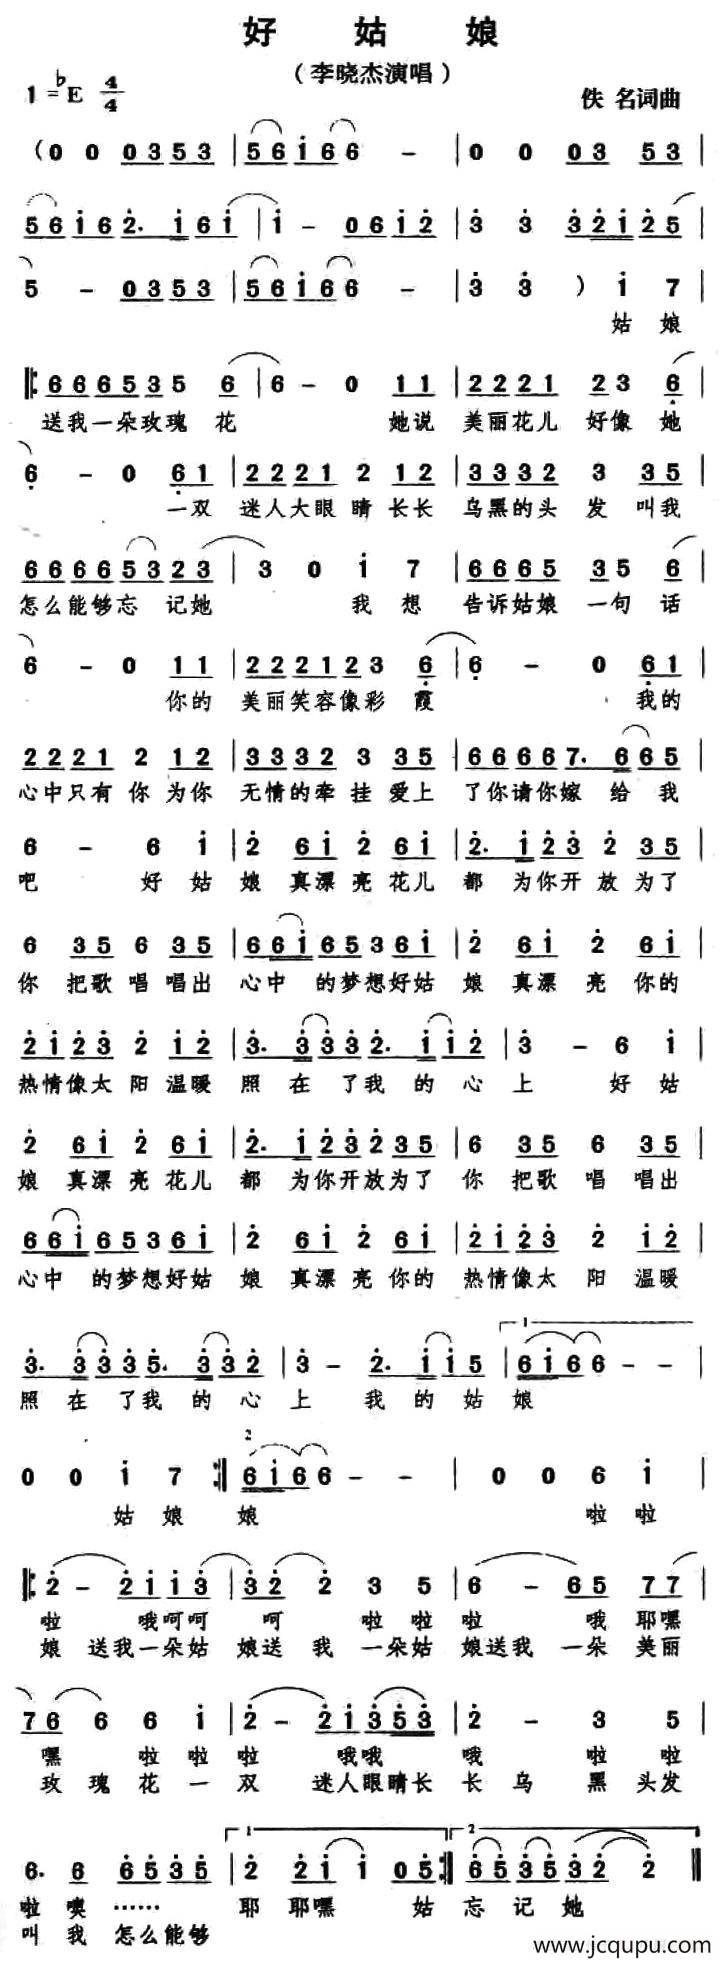 好 姑 娘
（李晓杰演唱）
1=♭E 4/4
佚 名词曲
(0 0 0353 | 561̇66 - | 0 0 03 53 |
561̇62̇. 1̇61̇ | 1̇ - 061̇2̇ | 3̇ 3̇ 3̇2̇1̇2̇5
5 - 0353 | 561̇66 - | 3̇ 3̇ ) 1̇ 7 |
姑 娘
666535 6 | 6 - 0 11 | 2221 23 6̣
送我一朵玫瑰 花 她说 美丽花儿 好像 她
6̣ - 0 6̣1 | 2221 2 12 | 3332 3 35 |
一双 迷人大眼 睛 长长 乌黑的头 发 叫我
66665323 | 3 0 1̇ 7 | 6665 35 6
怎么能够忘 记她 我 想 告诉姑娘 一句 话
6 - 0 11 | 222123 6̣ | 6̣ - 0 6̣1 |
你的 美丽笑容像彩 霞 我的
2221 2 12 | 3332 3 35 | 66667. 665 |
心中只有 你 为你 无情的牵 挂 爱上 了你请你嫁 给 我
6 - 6 1̇ | 2̇ 61̇ 2̇ 61̇ | 2̇. 1̇2̇3̇ 2̇ 35 |
吧 好 姑 娘 真漂 亮 花儿 都 为你开 放 为了
6 35 6 35 | 661̇65361̇ | 2̇ 61̇ 2̇ 61̇ |
你 把歌 唱 唱出 心中 的梦想好姑 娘 真漂 亮 你的
2̇1̇2̇3̇ 2̇ 1̇2̇ | 3̇. 3̇3̇3̇2̇. 1̇1̇2̇ | 3̇ - 6 1̇ |
热情像太 阳 温暖 照 在 了我 的 心 上 好 姑
2̇ 61̇ 2̇ 61̇ | 2̇. 1̇2̇3̇2̇35 | 6 35 6 35 |
娘 真漂 亮 花儿 都 为你开放为了 你 把歌 唱 唱出
661̇65361̇ | 2̇ 61̇ 2̇ 61̇ | 2̇1̇2̇3̇ 2̇ 1̇2̇ |
心中 的梦想好姑 娘 真漂 亮 你的 热情像太 阳 温暖
3̇. 3̇3̇3̇5̇. 3̇3̇2̇ | 3̇ - 2̇. 1̇1̇5 | 1 61̇66 - - |
照 在 了我 的 心 上 我 的 姑 娘
0 0 1̇ 7 :‖ 2 61̇66 - - | 0 0 6 1̇ |
姑 娘 娘 啦 啦
2̇ - 2̇1̇1̇3̇ | 3̇2̇ 2̇ 3 5 | 6 - 65 77
啦 哦呵呵 呵 啦 啦 啦 哦 耶嘿
娘 送我一朵姑 娘送 我 一朵姑 娘送我 一朵 美丽
76 6 6 1̇ | 2̇ - 2̇1̇3̇5̇3̇ | 2̇ - 3 5 |
嘿 啦 啦 啦 哦哦 哦 啦 啦
玫 瑰 花 一 双 迷人眼睛长 长 乌 黑 头发
6. 6 6̇5̇3̇5̇ | 1 2̇ 2̇1̇ 1̇ 05̇ :‖ 2 6̇5̇3̇5̇3̇2̇ 2̇ ‖
啦 噢 …… 耶 耶嘿 姑 忘 记 她
叫 我 怎么能够
www.jcqupu.com